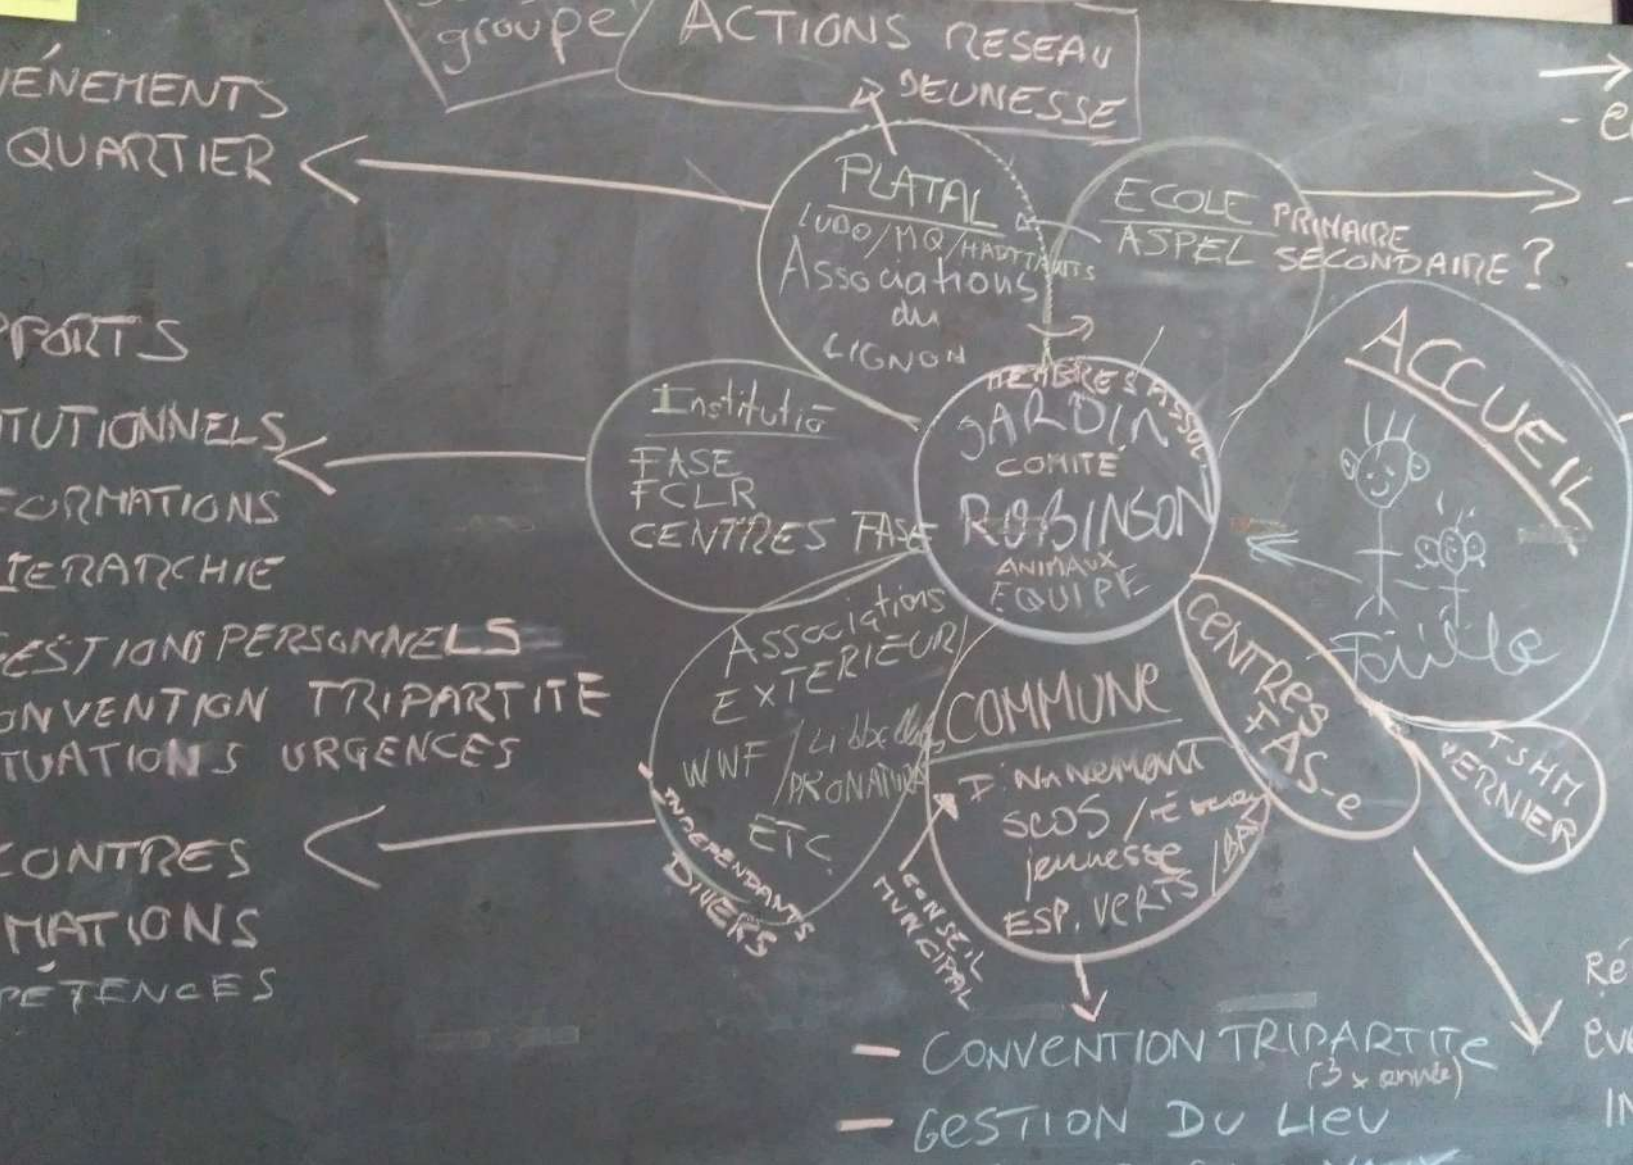 groupe
ACTIONS RESEAU
JEUNESSE
ÉNEMENTS
QUARTIER
PPORTS
TUTIONNELS
FORMATIONS
IERARCHIE
GESTIONS PERSONNELS
ONVENTION TRIPARTITE
TUATIONS URGENCES
CONTRES
MATIONS
PÉTENCES
PLATAL
LUDO/MQ/HAUTTAUTS
Associations
du
LIGNON
ECOLE
ASPEL
PRIMAIRE
SECONDAIRE ?
ACCUEIL
Institutiō
FASE
FCLR
CENTRES FASE
MEMBRES ASSOC.
JARDIN
COMITÉ
ROBINSON
ANIMAUX
EQUIPE
Associations
EXTERIEUR
WWF /
/PRONATURA
ETC.
INDEPENDANTS
DIVERS
COMMUNE
SCOS /
jeunesse
ESP. VERTS /
CONSEIL
MUNICIPAL
CENTRES
TAS-e
TSHM
VERNIER
– CONVENTION TRIPARTITE
(3 x année)
– GESTION DU LIEU
Ré
EVE
IN